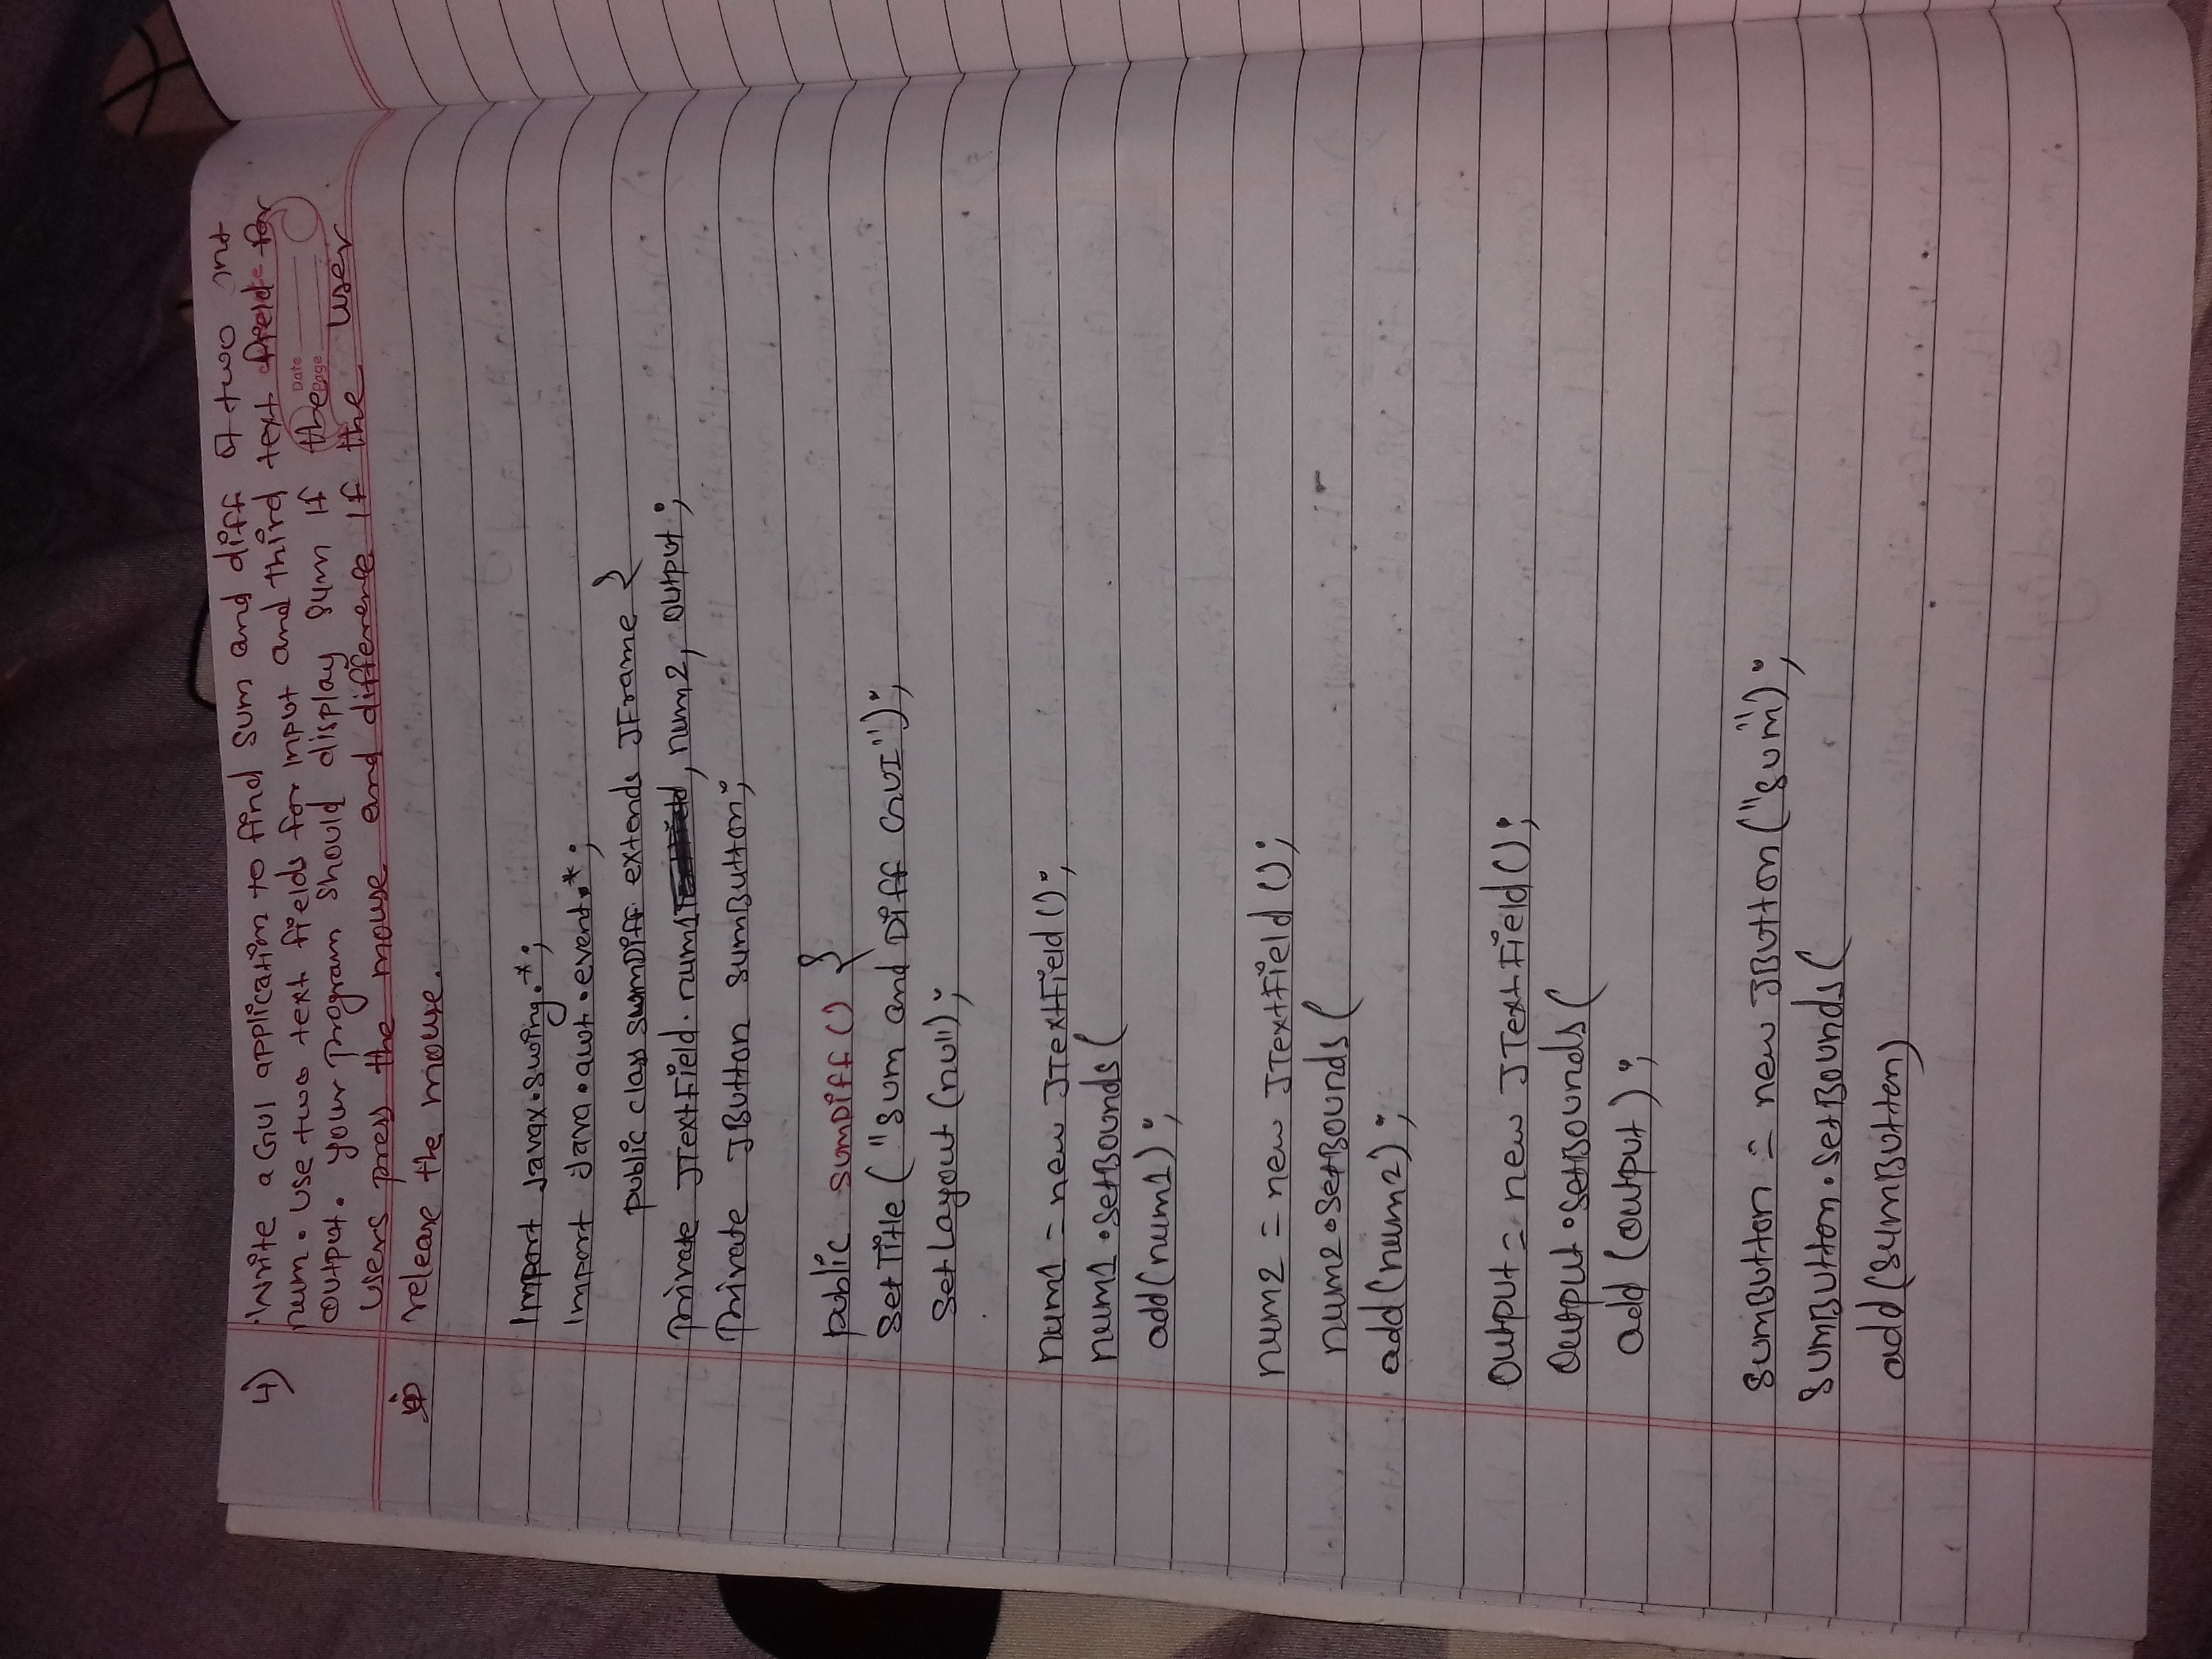 4) Write a GUI application to find sum and diff of two int
num. Use two text fields for input and third text field for
Date
output. your program should display sum if the
Page
users press the mouse and difference if the user
release the mouse.
Import Javax.swing.*;
Import Java.awt.event.*;
public class sumDiff extends JFrame {
private JTextField. num1, num2, output;
private JButton sumButton;
public sumDiff () {
SetTitle ("sum and Diff GUI");
SetLayout (null);
num1 = new JTextField ();
num1.setBounds (
add(num1);
num2 = new JTextField ();
num2.SetBounds (
add(num2);
output = new JTextField ();
Output.setBounds (
add (output);
sumButton = new JButton ("sum");
sumButton.setBounds (
add(sumButton)